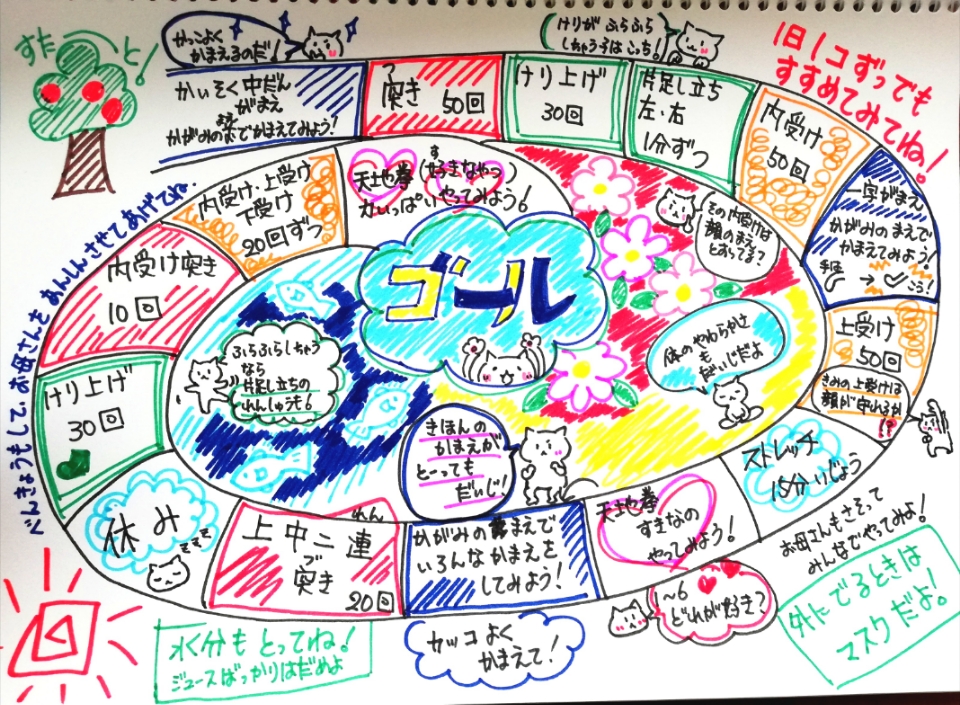 すたーと!
かっこよく
かまえるのだ!
かいそく中だん
がまえ
かがみの前でかまえてみよう!
つ
突き
50回
けりがふらふら
しちゃう子はこっち!
けり上げ
30回
片足し立ち
左・右
1分ずつ
1日1コずつでも
すすめてみてね!
内受け
50回
一字がまえ
かがみのまえで
かまえてみよう!
手は
こう!
上受け
50回
きみの上受けは
顔が守れるか
!?
ストレッチ
15分いじょう
お母さんもさそって
みんなでやってみよ!
外にでるときは
マスクだよ。
天地拳
すきなの
やってみよう!
1〜6
どれが好き?
かがみのまえで
いろんなかまえを
してみよう!
カッコよく
かまえて!
上中二連
れん
づ
突き
20回
水分もとってね!
ジュースばっかりはだめよ
休み
けり上げ
30回
内受け突き
10回
内受け・上受け
下受け
20回ずつ
天地拳
す
(好きなやつ)
力いっぱいやってみよう!
べんきょうもして、お母さんをあんしんさせてあげてね。
ゴール
その内受けは
顔のまえ
とおってる?
体のやわらかさ
も
だいじだよ
きほんの
かまえが
とーっても
だいじ!
ふらふらしちゃう
なら
片足し立ちの
れんしゅうも!